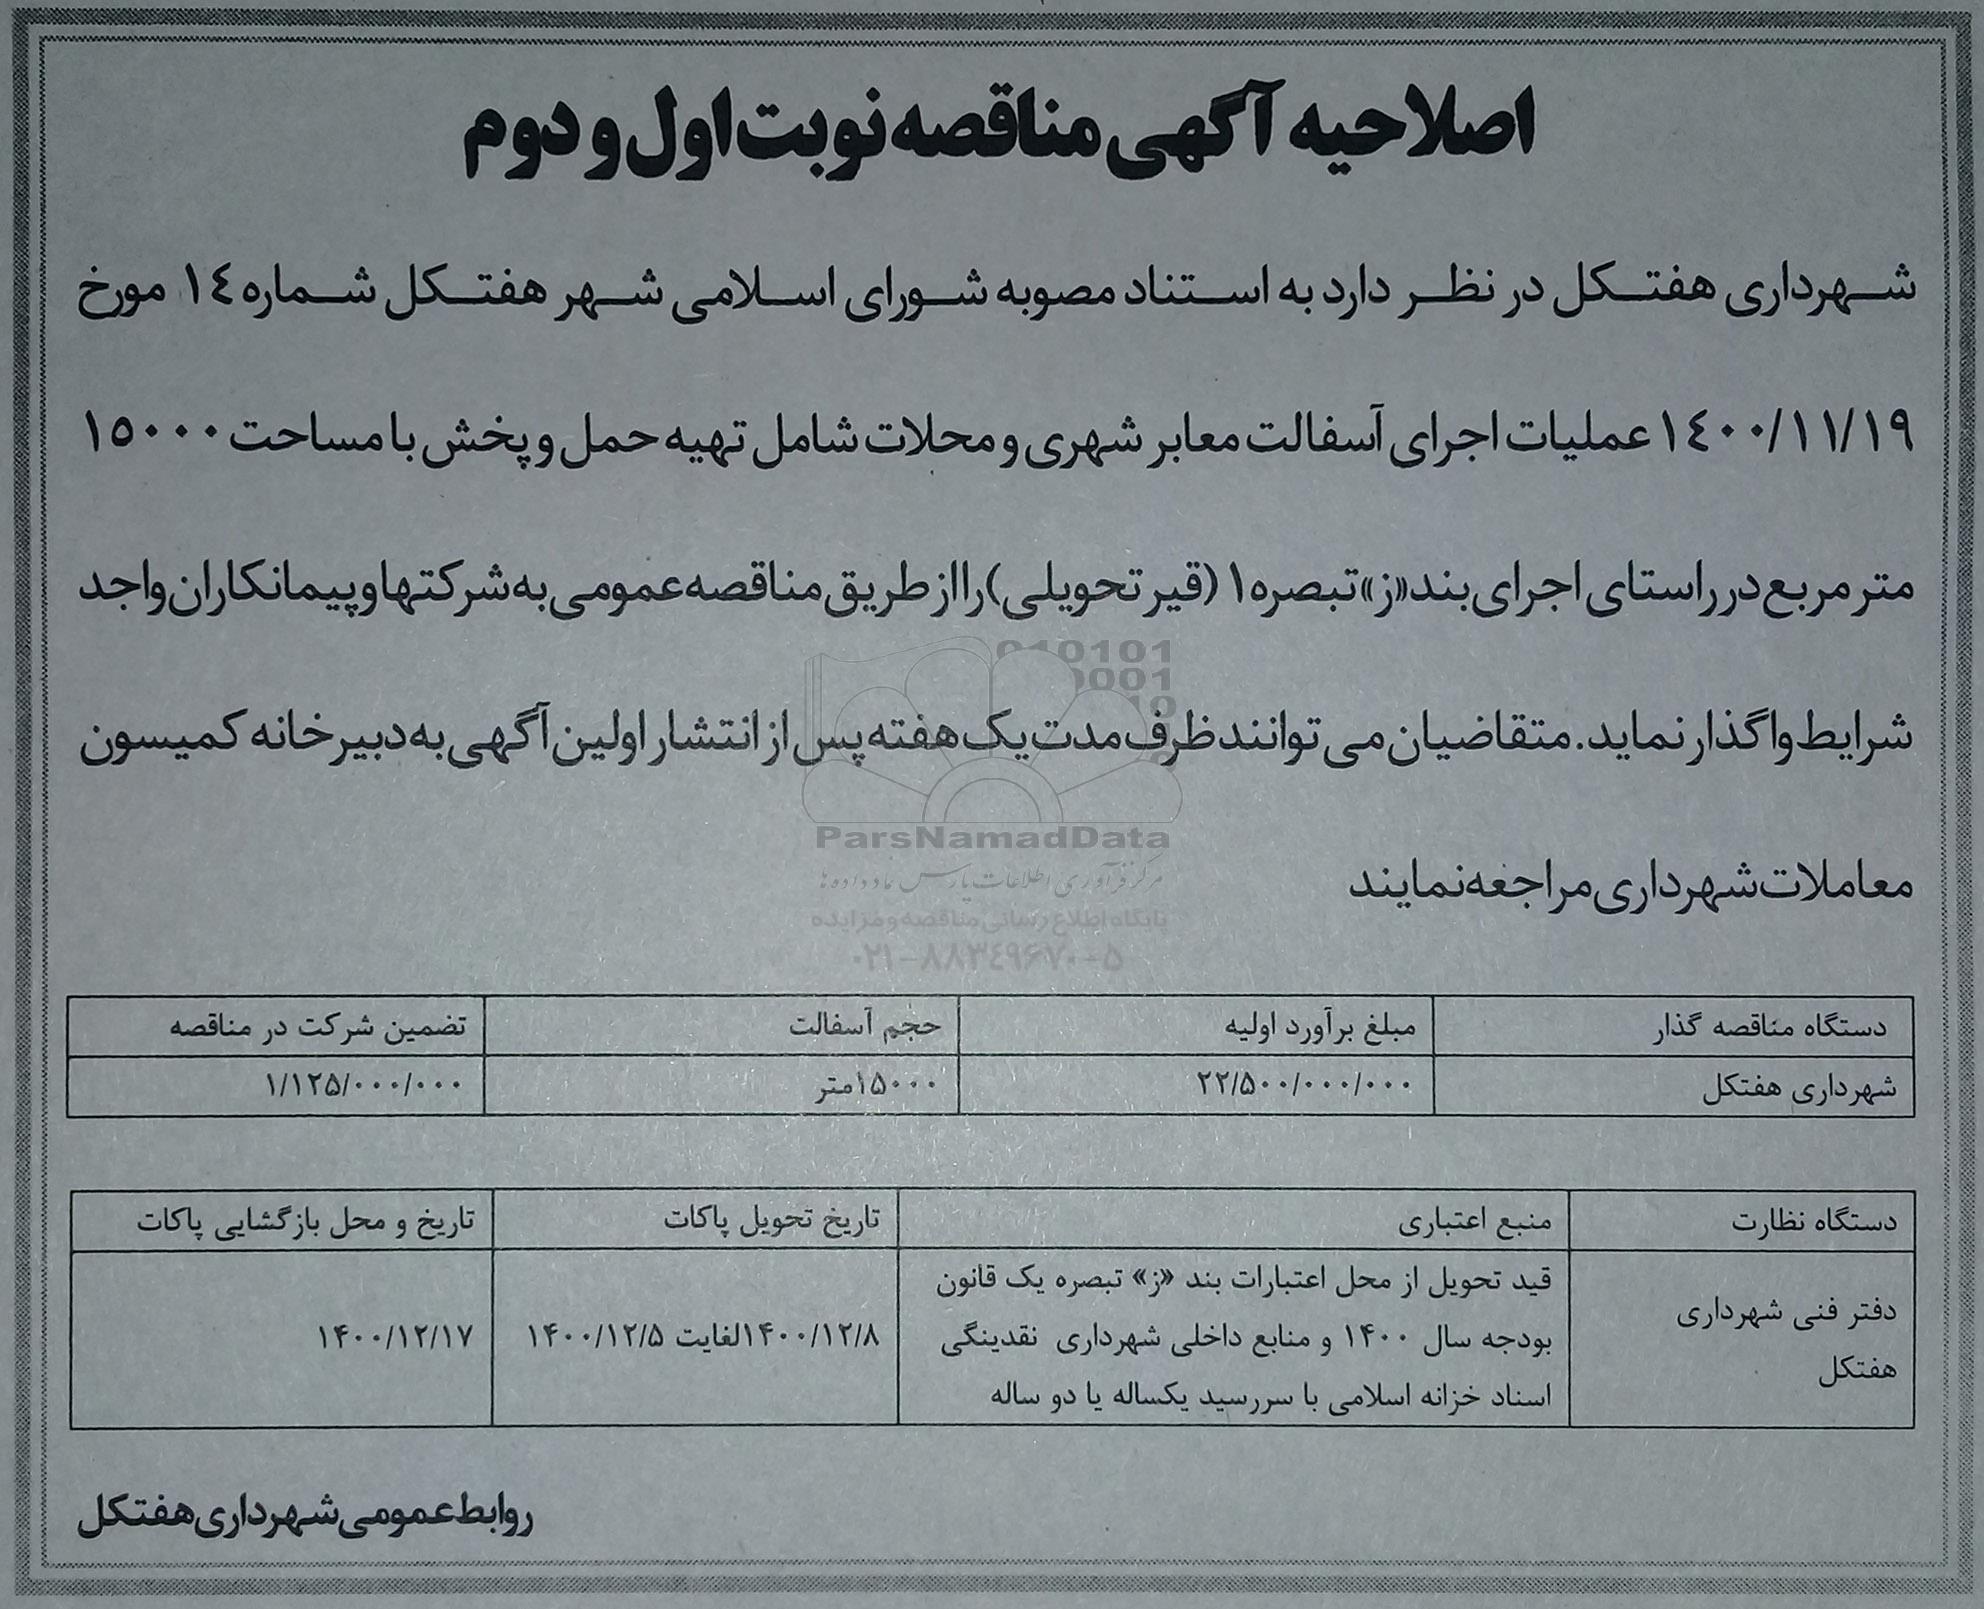 اصلاحیه آگهی مناقصه نوبت اول و دوم
شهرداری هفتکل در نظر دارد به استناد مصوبه شورای اسلامی شهر هفتکل شماره ١٤ مورخ
١٤٠٠/١١/١٩ عملیات اجرای آسفالت معابر شهری و محلات شامل تهیه حمل و پخش با مساحت ١٥٠٠٠
متر مربع در راستای اجرای بند «ز» تبصره ١ (قیر تحویلی) را از طریق مناقصه عمومی به شرکتها و پیمانکاران واجد
شرایط واگذار نماید. متقاضیان می توانند ظرف مدت یک هفته پس از انتشار اولین آگهی به دبیرخانه کمیسون
معاملات شهرداری مراجعه نمایند
010101
0001
10
ParsNamadData
مرکز فرآوری اطلاعات پارس نماد داده ها
پایگاه اطلاع رسانی مناقصه و مزایده
۰۲۱-۸۸۳۴۹۶۷۰-۵
دستگاه مناقصه گذار	مبلغ برآورد اولیه	حجم آسفالت	تضمین شرکت در مناقصه
شهرداری هفتکل	۲۲/۵۰۰/۰۰۰/۰۰۰	۱۵۰۰۰متر	۱/۱۲۵/۰۰۰/۰۰۰
دستگاه نظارت	منبع اعتباری	تاریخ تحویل پاکات	تاریخ و محل بازگشایی پاکات
دفتر فنی شهرداری
هفتکل
قید تحویل از محل اعتبارات بند «ز» تبصره یک قانون
بودجه سال ۱۴۰۰ و منابع داخلی شهرداری نقدینگی
اسناد خزانه اسلامی با سررسید یکساله یا دو ساله
۱۴۰۰/۱۲/۸لغایت ۱۴۰۰/۱۲/۵
۱۴۰۰/۱۲/۱۷
روابط عمومی شهرداری هفتکل